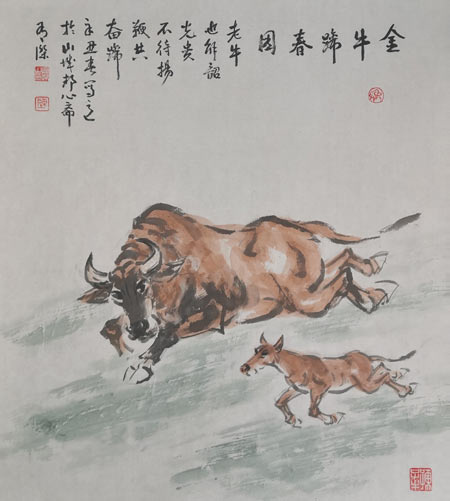 金牛蹄春图
老牛
也解韶
光贵
不待揚
鞭共
奋蹄
辛丑春写之
於山城心斋